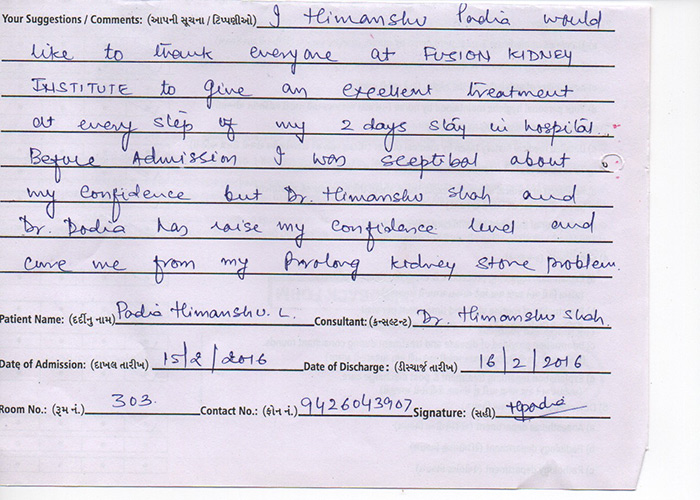 Your Suggestions / Comments: (આપની સૂચના / ટિપ્પણીઓ) I Himanshu Padia would
like to thank everyone at FUSION KIDNEY
INSTITUTE to give an excellent treatment
at every step of my 2 days stay in hospital.
Before Admission I was sceptibal about
my confidence but Dr. Himanshu Shah and
Dr. Dodia has raise my confidence level and
cure me from my Prolong kidney stone problem.
Patient Name: (દર્દીનુ નામ) Padia Himanshu. L. Consultant: (કન્સલ્ટન્ટ) Dr. Himanshu Shah.
Date of Admission: (દાખલ તારીખ) 15/2/2016 Date of Discharge: (ડીસ્ચાર્જ તારીખ) 16/2/2016
Room No.: (રૂમ નં.) 303. Contact No.: (ફોન નં.) 9426043907 Signature: (સહી) Hpadia